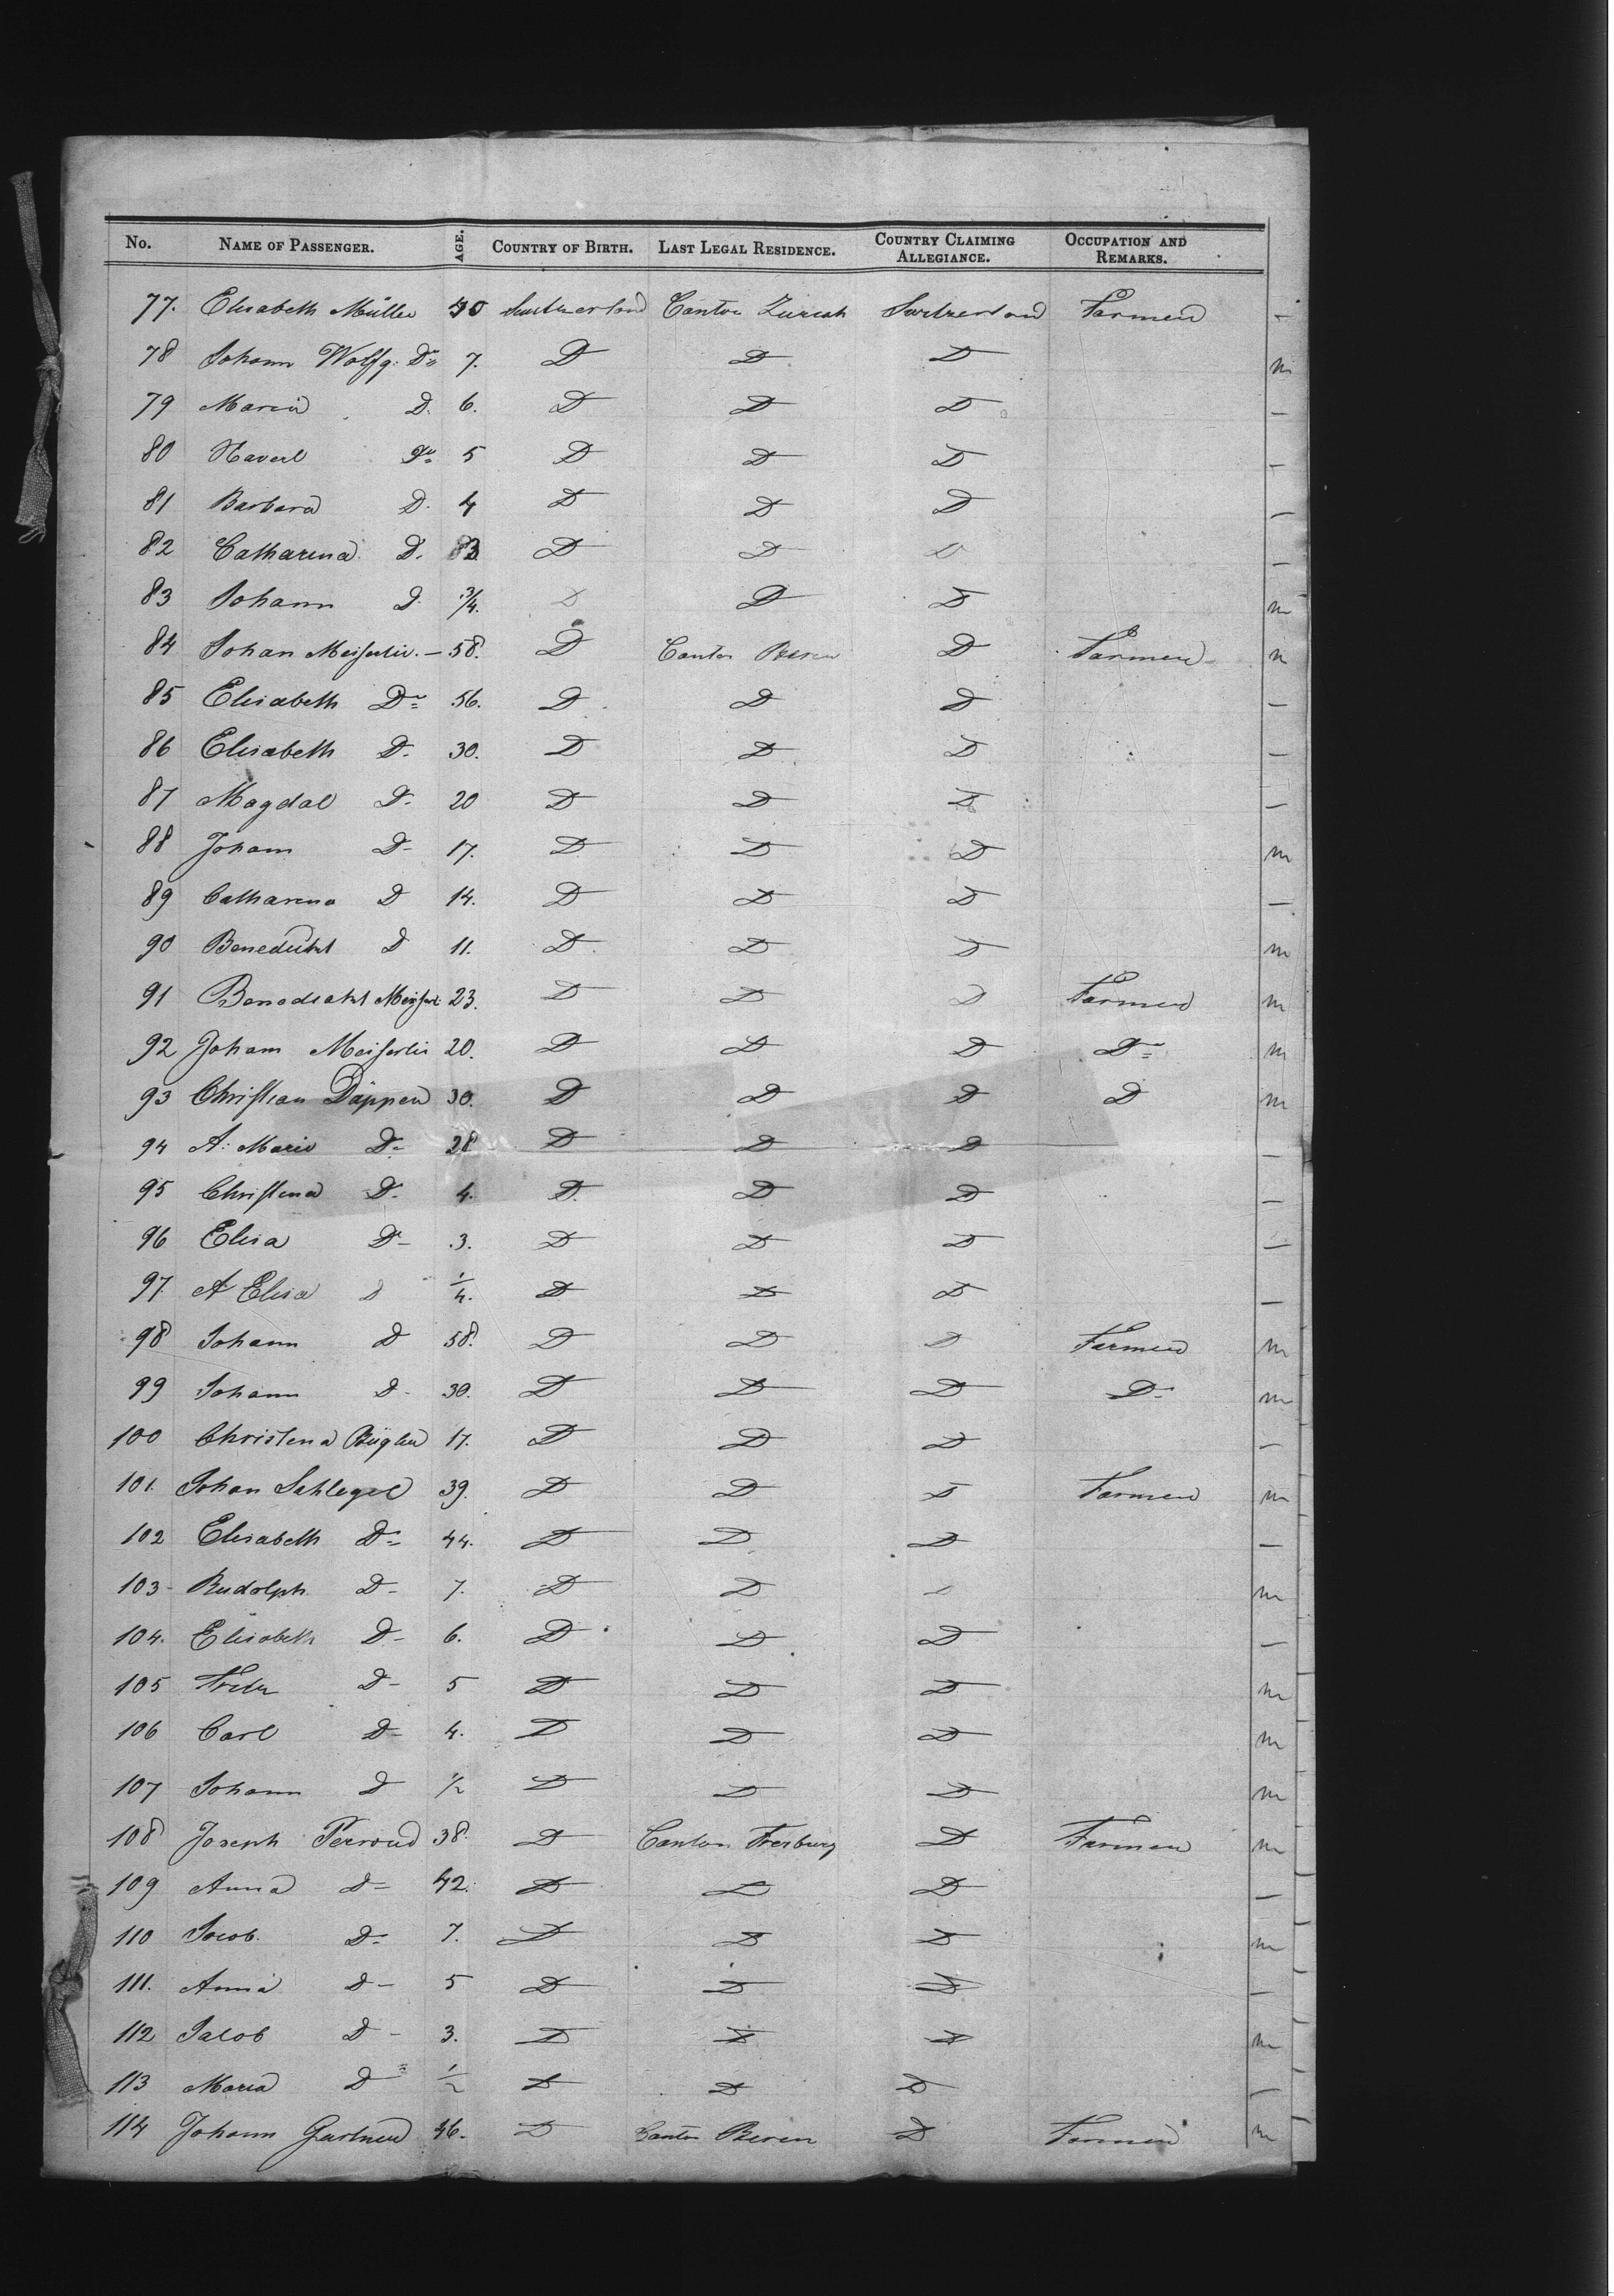 No. NAME OF PASSENGER. AGE. COUNTRY OF BIRTH. LAST LEGAL RESIDENCE. COUNTRY CLAIMING ALLEGIANCE. OCCUPATION AND REMARKS.
77. Elisabeth Müller 40 Switzerland Canton Zurich Switzerland Farmer —
78 Johann Wolfg. Do 7. D D D m
79 Maria D. 6. D D D —
80 Do 5 D D D —
81 Barbara D. 4 D D D —
82 Catharina D. D D D —
83 Johann D. 3/4. D D D m
84 Johan — 58. D Canton Bern D Farmer m
85 Elisabeth Do 56. D D D —
86 Elisabeth D. 30. D D D —
87 Magdal D. 20 D D D —
88 Johann D- 17. D D D m
89 Catharina D 14. D D D —
90 Benedickt D 11. D D D m
91 Benedickt 23. D D D Farmer m
92 Johann 20. D D D Do m
93 Christian Däppen 30. D D D D m
94 A. Marie Do 28 D D D —
95 Christina D. 4. D D D —
96 Elisa D- 3. D D D —
97. A Elisa D 1/4. D D D —
98 Johann D 58. D D D Farmer m
99 Johann D- 30. D D D D- m
100 Christena 17. D D D —
101. Johan Sahlegel 39. D D D Farmer m
102 Elisabeth Do 44. D D D —
103- Rudolph D- 7. D D D m
104. Elisabeth D- 6. D D D —
105 D- 5 D D D m
106 Carl D- 4. D D D m
107 Johann D 1/2 D D D m
108 Joseph Perroud 38. D Canton Freiburg D Farmer m
109 Anna D- 42. D D D —
110 Jacob. D- 7. D D D m
111. Anna D- 5 D D D —
112 Jacob D- 3. D D D m
113 Maria D 1/2 D D D —
114 Johann 46. D Canton Bern D Farmer m